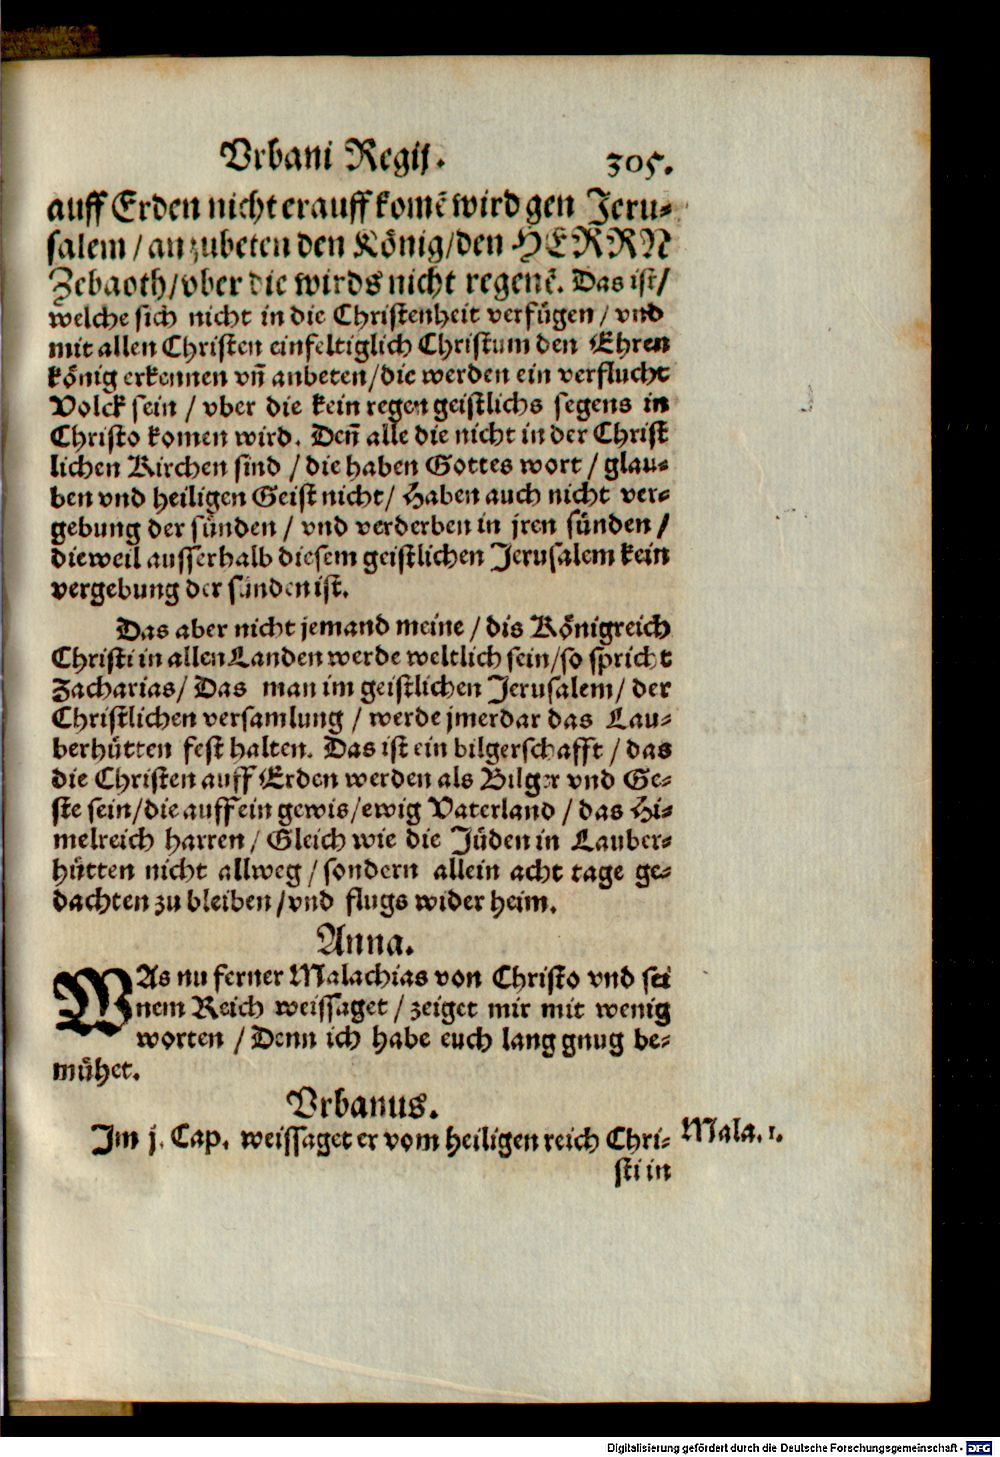 Vrbani Regij. 305.
auff Erden nicht erauff komẽ wird gen Jeru-
salem / anzubeten den König/den HERRN
Zebaoth/vber die wirds nicht regenẽ. Das ist/
welche sich nicht in die Christenheit verfügen / vnd
mit allen Christen einfeltiglich Christum den Ehren
könig erkennen vñ anbeten/die werden ein verflucht
Volck sein / vber die kein regen geistlichs segens in
Christo komen wird. Deñ alle die nicht in der Christ
lichen Kirchen sind / die haben Gottes wort / glau-
ben vnd heiligen Geist nicht/ Haben auch nicht ver-
gebung der sünden / vnd verderben in jren sünden /
dieweil ausserhalb diesem geistlichen Jerusalem kein
vergebung der sünden ist.
Das aber nicht jemand meine / dis Königreich
Christi in allen Landen werde weltlich sein/so spricht
Zacharias/ Das man im geistlichen Jerusalem/ der
Christlichen versamlung / werde jmerdar das Lau-
berhütten fest halten. Das ist ein bilgerschafft / das
die Christen auff Erden werden als Bilger vnd Ge-
ste sein/die auff ein gewis/ewig Vaterland / das Hi-
melreich harren / Gleich wie die Jüden in Lauber-
hütten nicht allweg / sondern allein acht tage ge-
dachten zu bleiben /vnd flugs wider heim.
Anna.
WAs nu ferner Malachias von Christo vnd sei
nem Reich weissaget / zeiget mir mit wenig
worten / Denn ich habe euch lang gnug be-
mühet.
Vrbanus.
Im j. Cap. weissaget er vom heiligen reich Chri- Mala. 1.
sti in
Digitalisierung gefördert durch die Deutsche Forschungsgemeinschaft - DFG